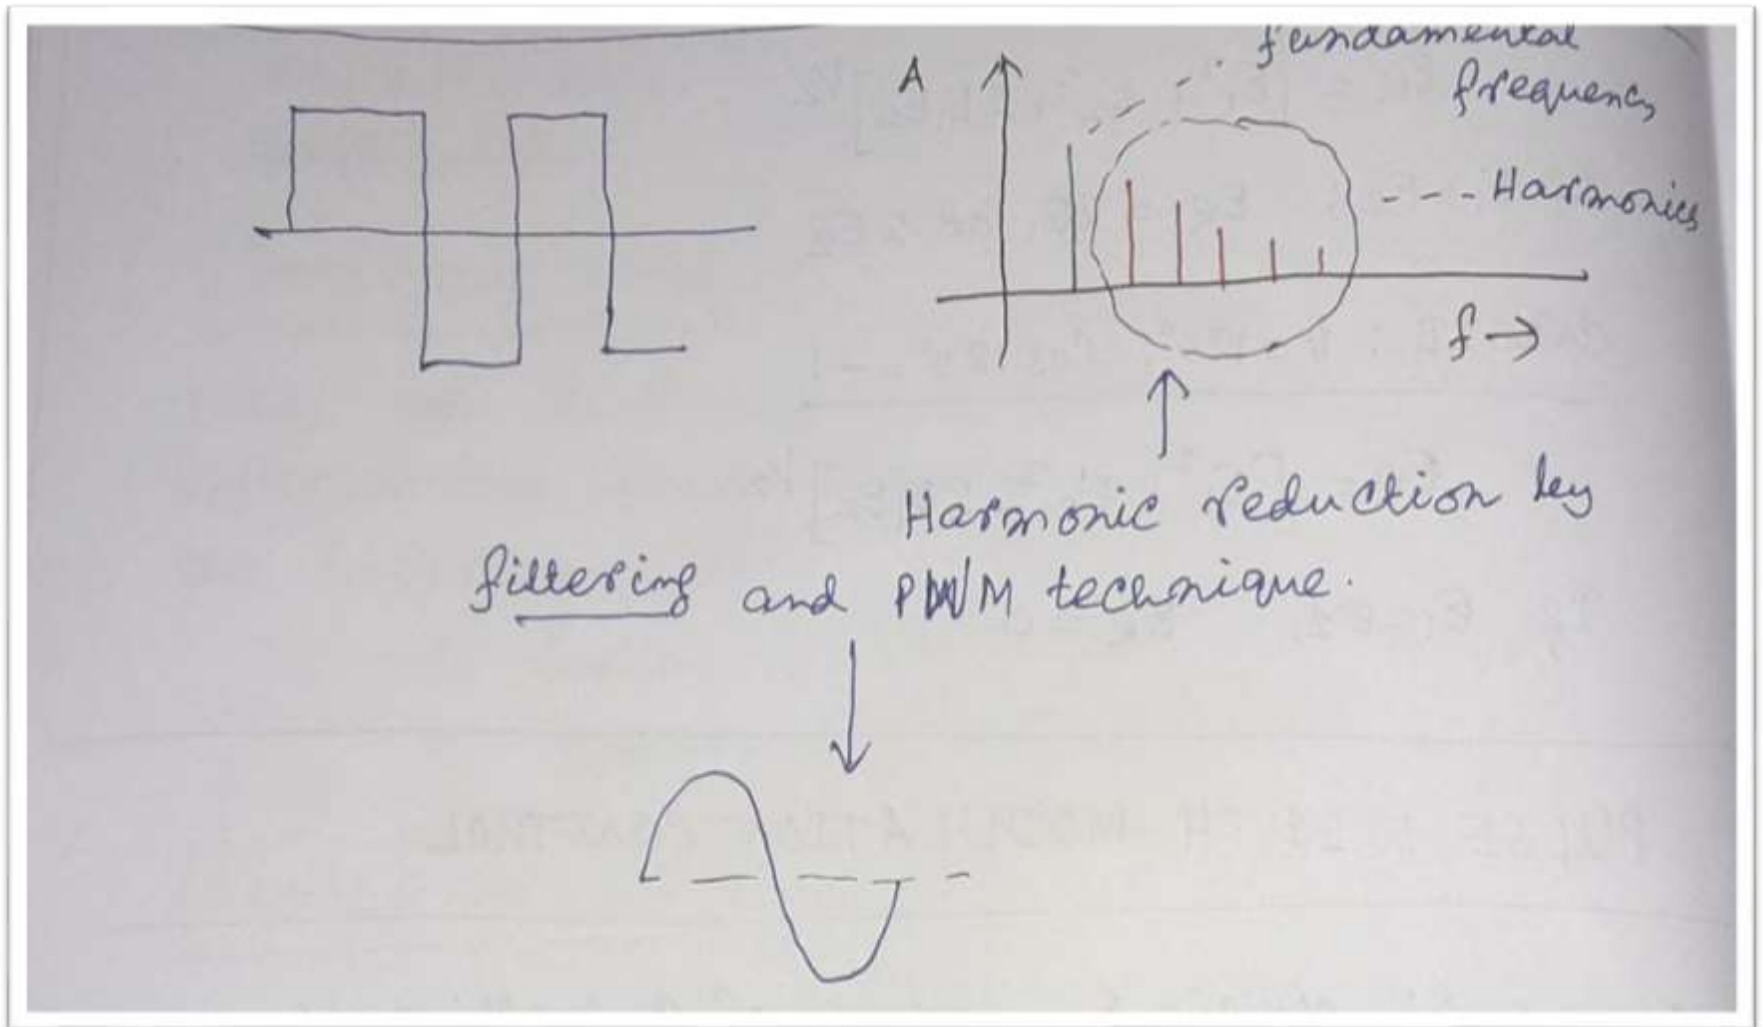 A
fundamental
frequency
- - - Harmonics
f →
Harmonic reduction by
filtering and PWM technique.